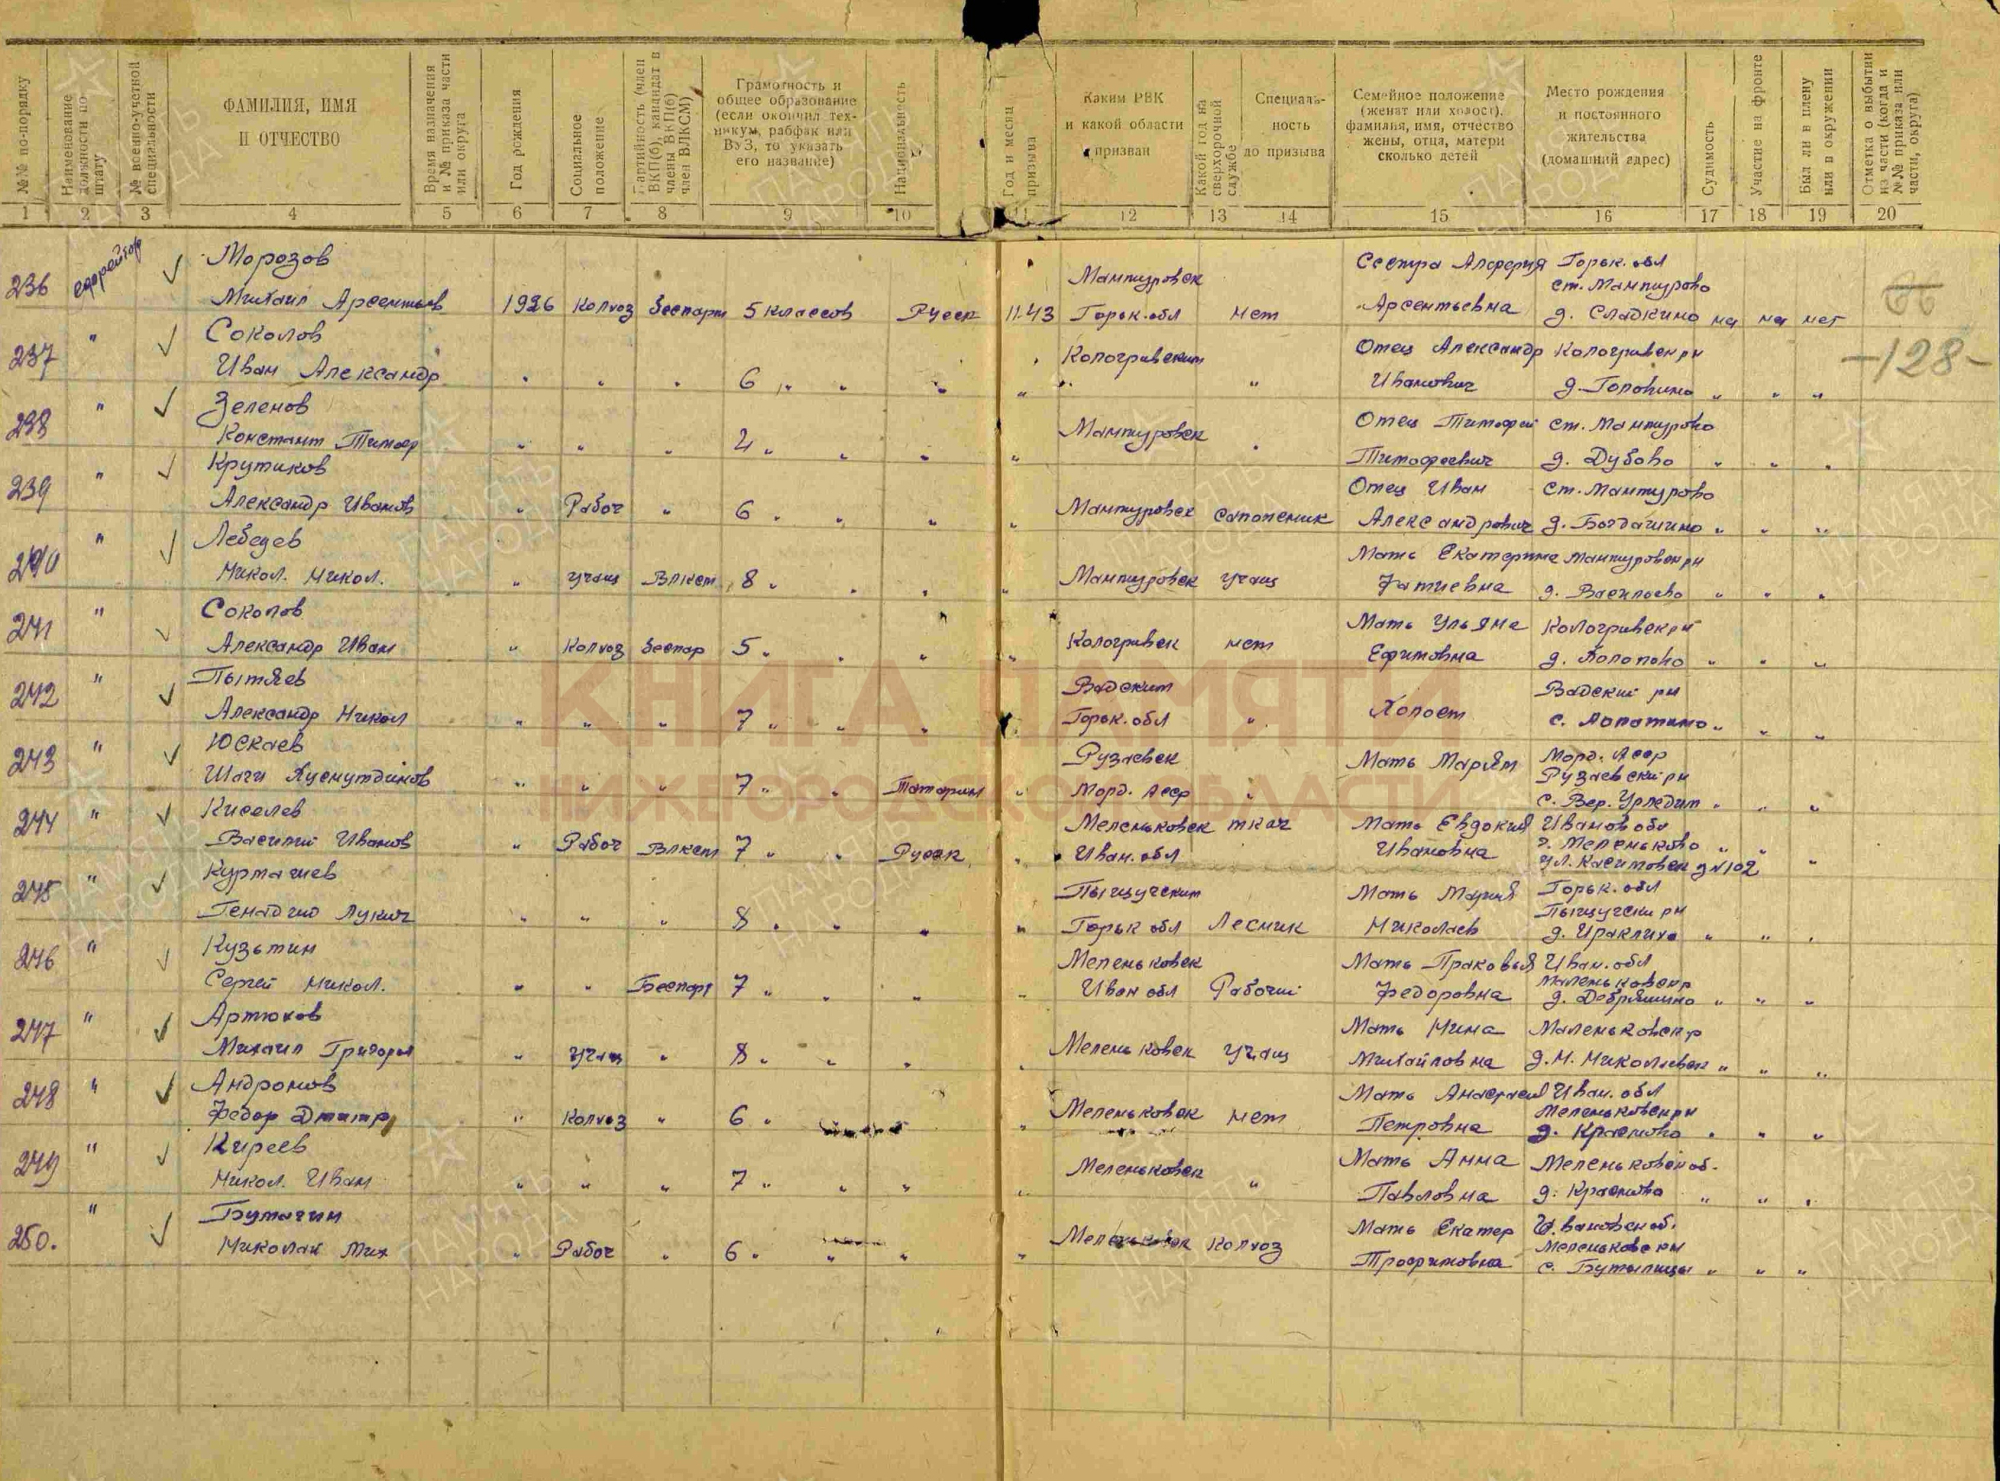 №№ по-порядку
Наименование должности по штату
№ военно-учетной специальности
ФАМИЛИЯ, ИМЯ И ОТЧЕСТВО
Время назначения и № приказа части или округа
Год рождения
Социальное положение
Партийность (член ВКП(б), кандидат в члены ВКП(б) член ВЛКСМ)
Грамотность и общее образование (если окончил техникум, рабфак или ВУЗ, то указать его название)
Национальность
Год и месяц призыва
Каким РВК и какой области призван
Какой год на сверхсрочной службе
Специальность до призыва
Семейное положение (женат или холост), фамилия, имя, отчество жены, отца, матери сколько детей
Место рождения и постоянного жительства (домашний адрес)
Судимость
Участие на фронте
Был ли в плену или в окружении
Отметка о выбытии из части (когда и №№ приказа или части, округа)
1 2 3 4 5 6 7 8 9 10 11 12 13 14 15 16 17 18 19 20
ефрейтор Морозов Мантуровск Сестра Алферия Горьк. обл
ст. Мантурово
236 Михаил Арсентьев 1926 Колхоз Беспарт 5 классов Русск 11.43 Горьк. обл нет Арсентьевна д. Сладкино на на нет
" Соколов Кологривским Отец Александр Кологривск рн
-128-
237 Иван Александр " " " 6 " " " " " " Иванович " " "
" Зеленов Мантуровск Отец Тимофей ст. Мантурово
238 Констант Тимоф " " " 2 " " " " " Тимофеевич д. Дубово " " "
" Крутиков Отец Иван ст. Мантурово
239 Александр Иванов " Рабоч " 6 " " " " Мантуровск сапожник Александрович " " "
" Лебедев Мать Екатерина Мантуровск рн
240 Никол. Никол. " учащ Влксм 8 " " " " Мантуровск учащ д. Васильево " " "
" Соколов Мать Ульяна Кологривск рн
241 Александр Иван " Колхоз Беспар 5 " " " " Кологривск нет Ефимовна " " "
" Пытяев Вадским Вадский рн
242 Александр Никол " " " 7 " " " " Горьк. обл " Холост с. Лопатино " " "
" Юскаев Рузаевск Мать Марьям Морд. Асср
Рузаевский рн
243 Шаги Хуснутдинов " " " 7 " " Татарин " Морд. Асср " с. Вер. Урледим " " "
" Киселев Меленьковск ткач Мать Евдокия Иванов обл
г. Меленьково
244 Василий Иванов " Рабоч Влксм 7 " " Русск " Иван. обл Ивановна ул. Касимовск д №102 " " "
" Курташев Пыщугским Мать Мария Горьк. обл
Пыщугски рн
245 Генадию Лукич " " " 8 " " " " Горьк обл Лесник Николаев д. Ираклиха " " "
" Кузьмин Меленьковск Мать Праковья Иван. обл
Маленьковск р
246 Сергей Никол. " " Беспарт 7 " " " " Иван обл Рабочий Федоровна " " "
" Артюхов Мать Нина Маленьковск р
247 Михаил Григорьи " Учащ " 8 " " " " Меленьковск Учащ Михайловна д. Н. Николаевск " " "
" Андронов Мать Анастасия Иван. обл
Меленьковск рн
248 Федор Дмитр " Колхоз " 6 " " " Меленьковск нет Петровна д. Красново " " "
" Киреев Меленьковск Мать Анна Меленьковск об.
249 Никол. Иван " " " 7 " " " " " Павловна д. Красново " " "
" Бутагин Мать Екатер Ивановск об.
Меленьковс рн
250. Николай Мих " Рабоч " 6 " " " " Меленьковск колхоз Трофимовна с. Бутылицы " " "
КНИГА ПАМЯТИ
НИЖЕГОРОДСКОЙ ОБЛАСТИ
ПАМЯТЬ НАРОДА